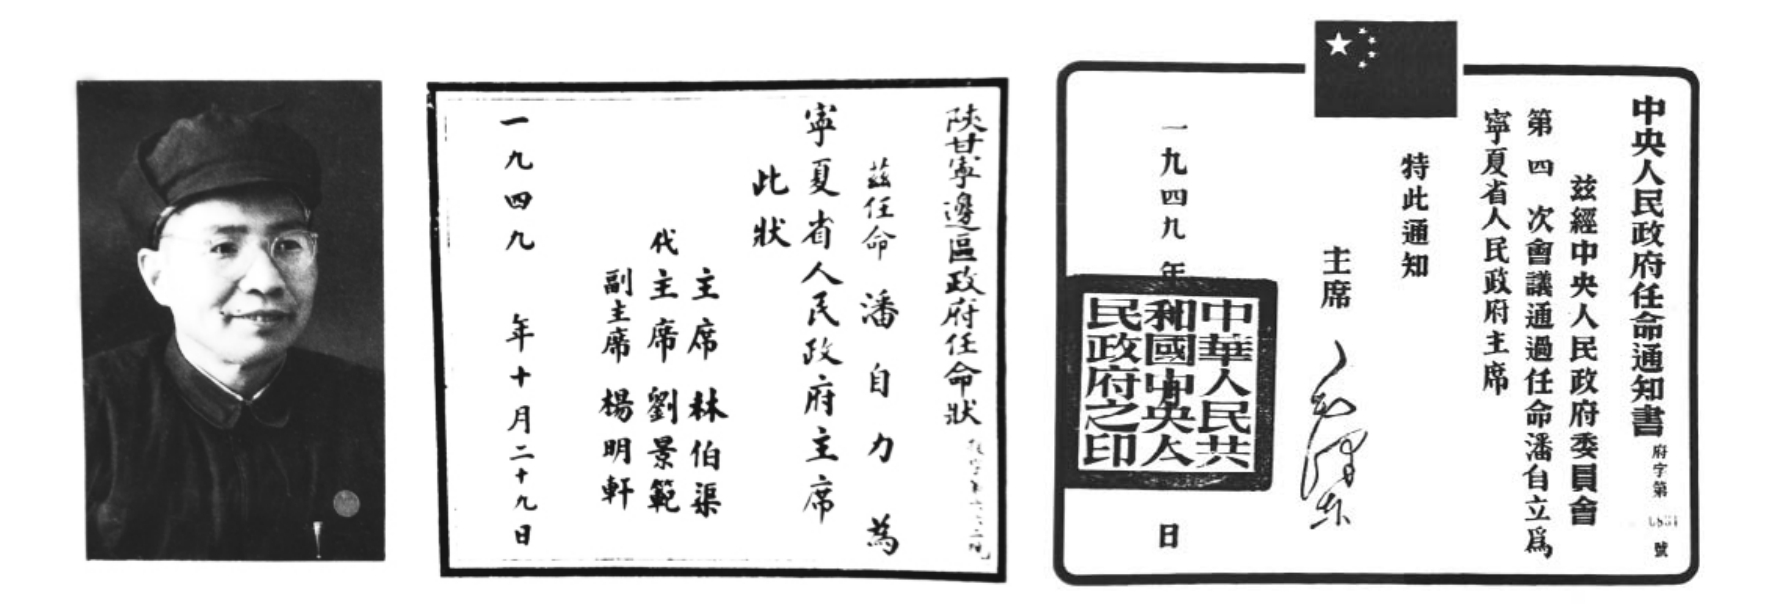 陝甘寧邊區政府任命狀
茲任命 潘自力 為
寧夏省人民政府主席
此狀
主席 林伯渠
代主席 劉景範
副主席 楊明軒
一九四九年十月二十九日
中央人民政府任命通知書
府字第 號
茲經中央人民政府委員會
第四次會議通過任命潘自立爲
寧夏省人民政府主席
特此通知
主席 毛澤東
一九四九年 日
中華人民共
和國中央人
民政府之印